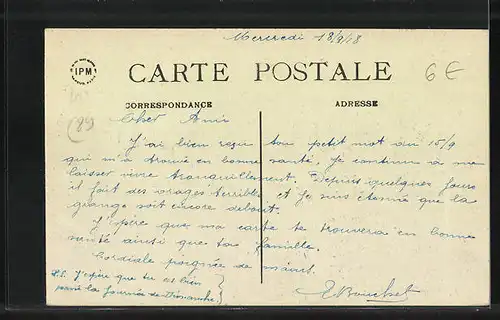 Mercredi 18/9/18
IPM
CARTE POSTALE
6€
CORRESPONDANCE
ADRESSE
(89)
Cher Ami
J'ai bien reçu ton petit mot du 15/9
qui m'a trouvé en bonne santé. Je continue à me
laisser vivre tranquillement. Depuis quelques jours
il fait des orages terribles et je suis étonné que la
grange soit encore debout.
J'espère que ma carte te trouvera en bonne
santé ainsi que ta famille.
Cordiale poignée de mains.
P.S. J'espère que tu as bien
passé la journée de Dimanche.